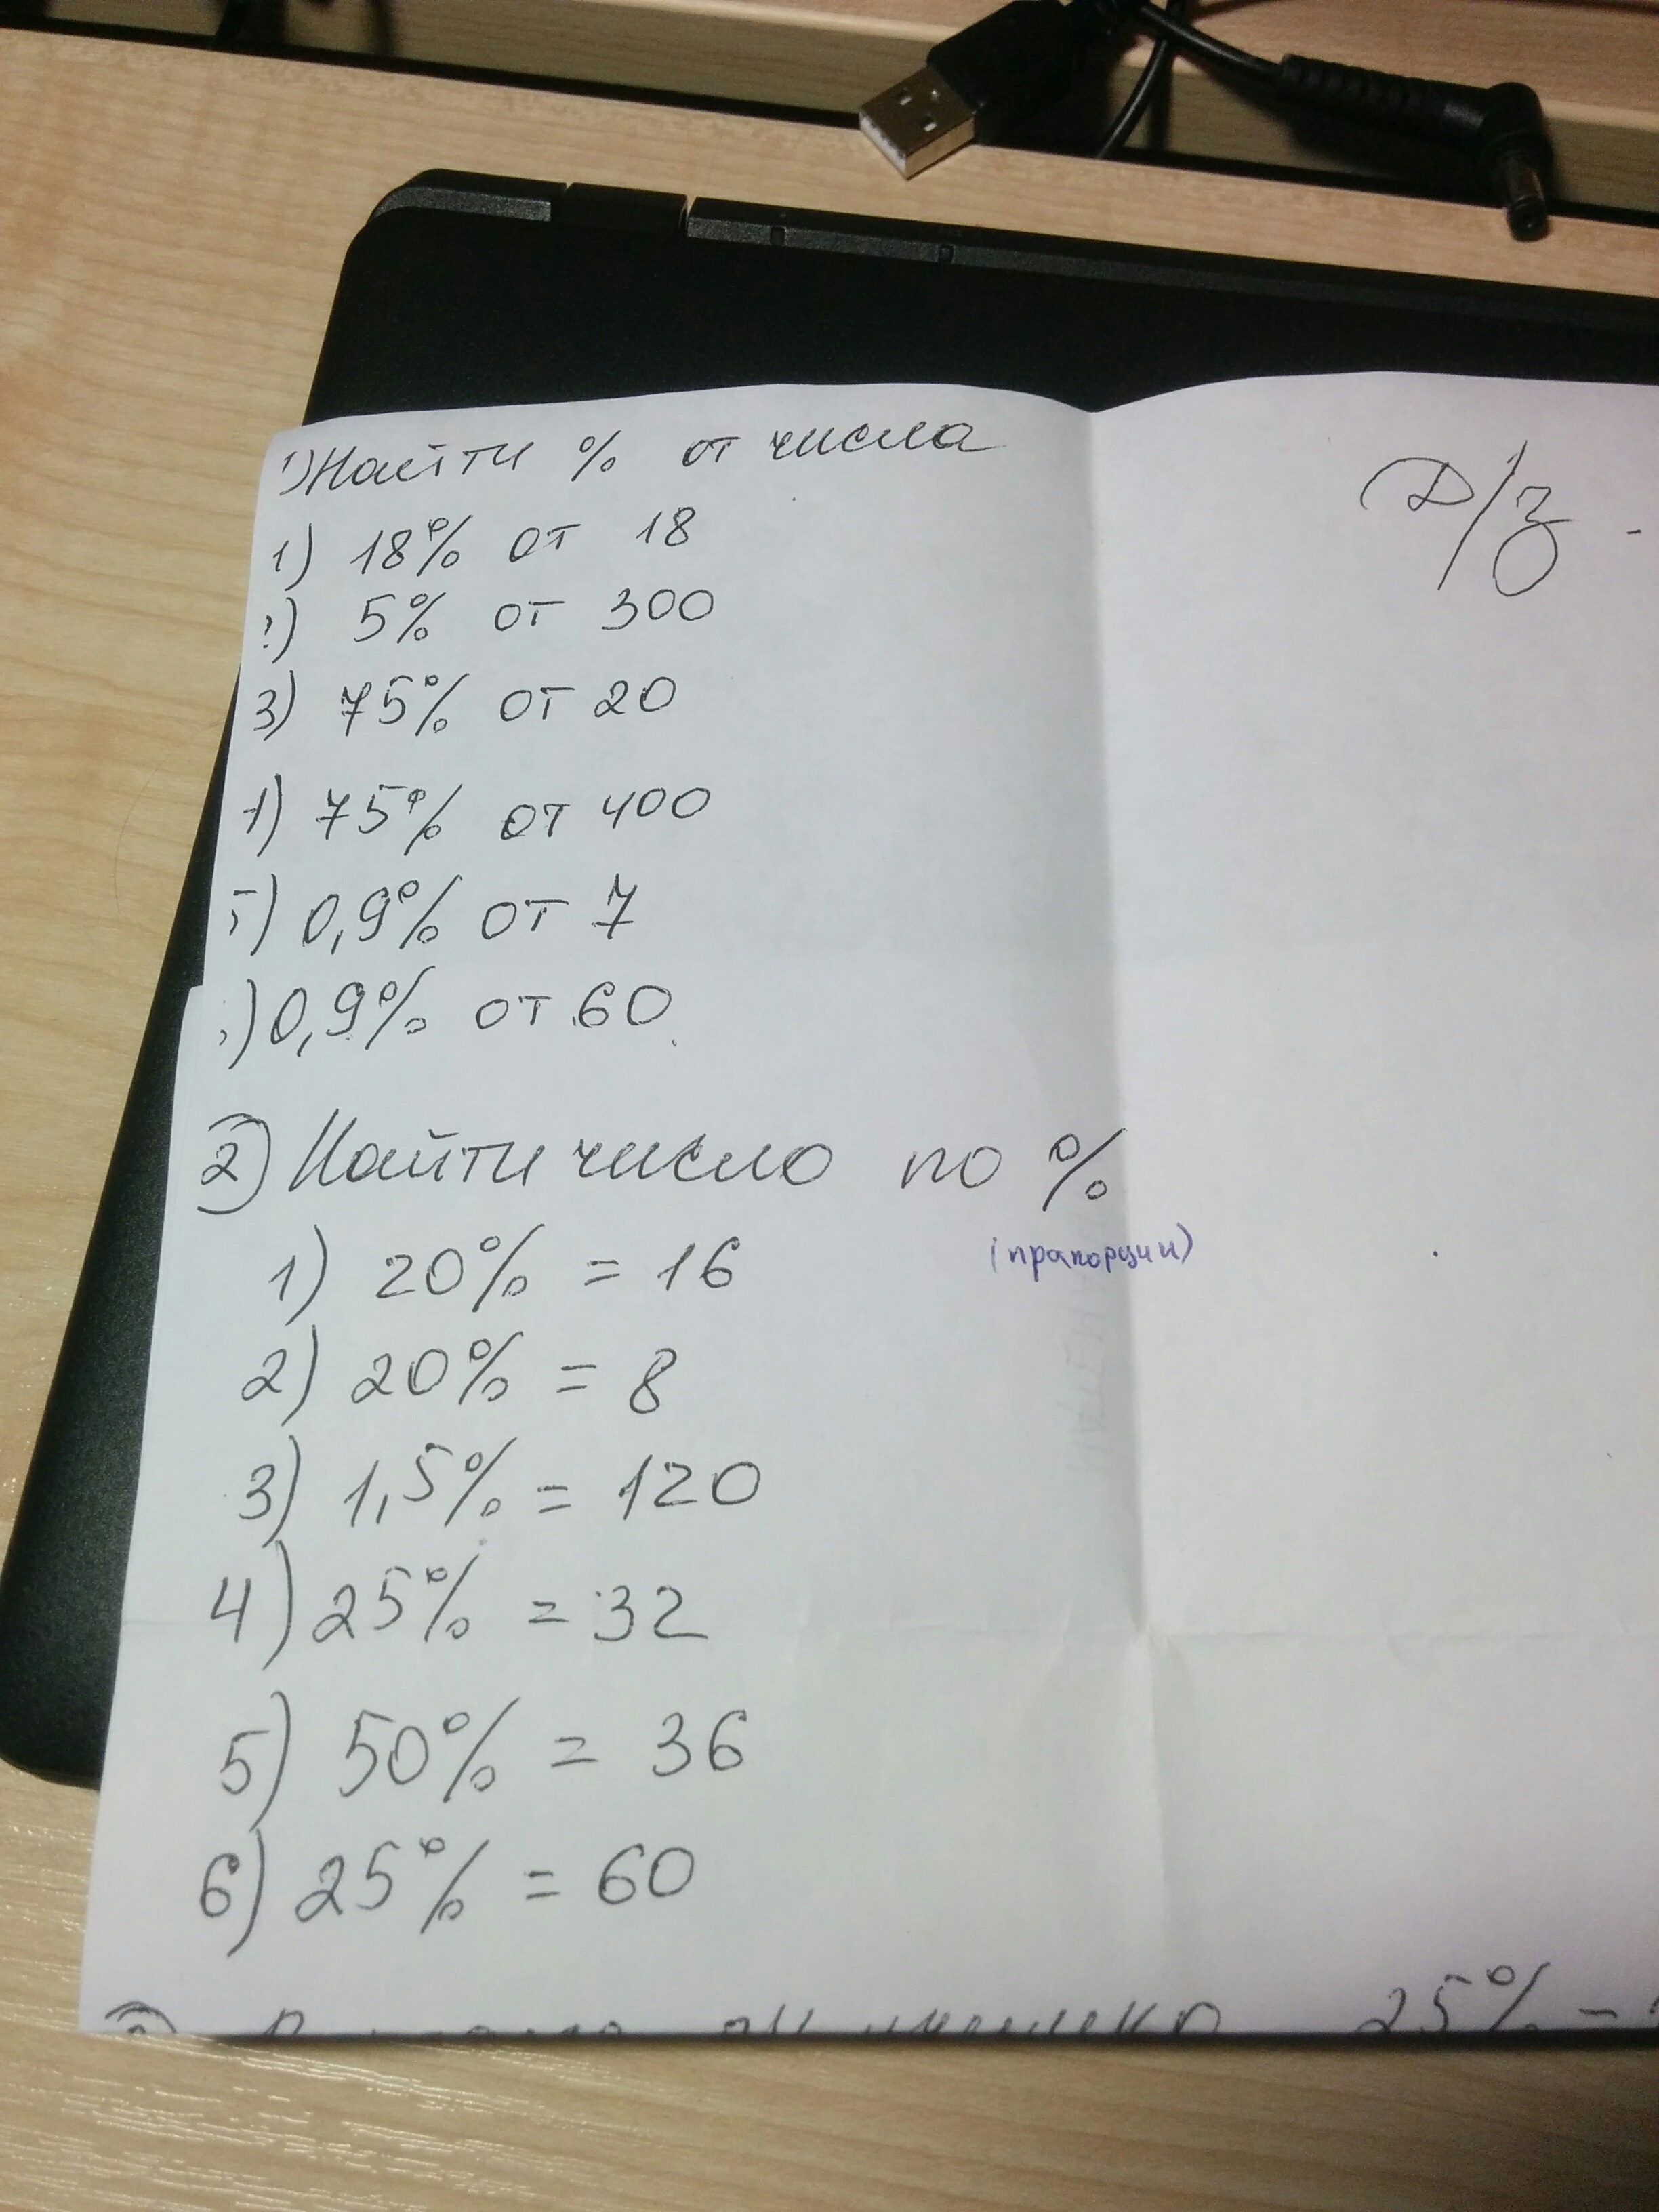 1) Найти % от числа
Д/з -
1) 18% от 18
2) 5% от 300
3) 75% от 20
4) 75% от 400
5) 0,9% от 7
) 0,9% от 60
2) Найти число по %
(прапорции)
1) 20% = 16
2) 20% = 8
3) 1,5% = 120
4) 25% = 32
5) 50% = 36
6) 25% = 60
25% -